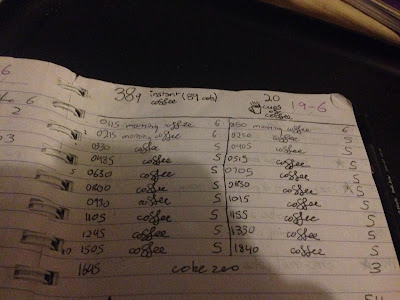 38g instant (89 cals)
coffee
20
cups of
coffee
19-6
0115 morning coffee 6
0215 morning coffee 5
0330 coffee 5
0435 coffee 5
5 0630 coffee 5
0800 coffee 5
0930 coffee 5
1105 coffee 5
1245 coffee 5
10 1505 coffee 5
0150 morning coffee 6
0250 coffee 5
0405 coffee 5
0515 coffee 5
0705 coffee 5
0830 coffee 5
1015 coffee 5
1155 coffee 5
1330 coffee 5
1840 coffee 5
1645 coke zero 3